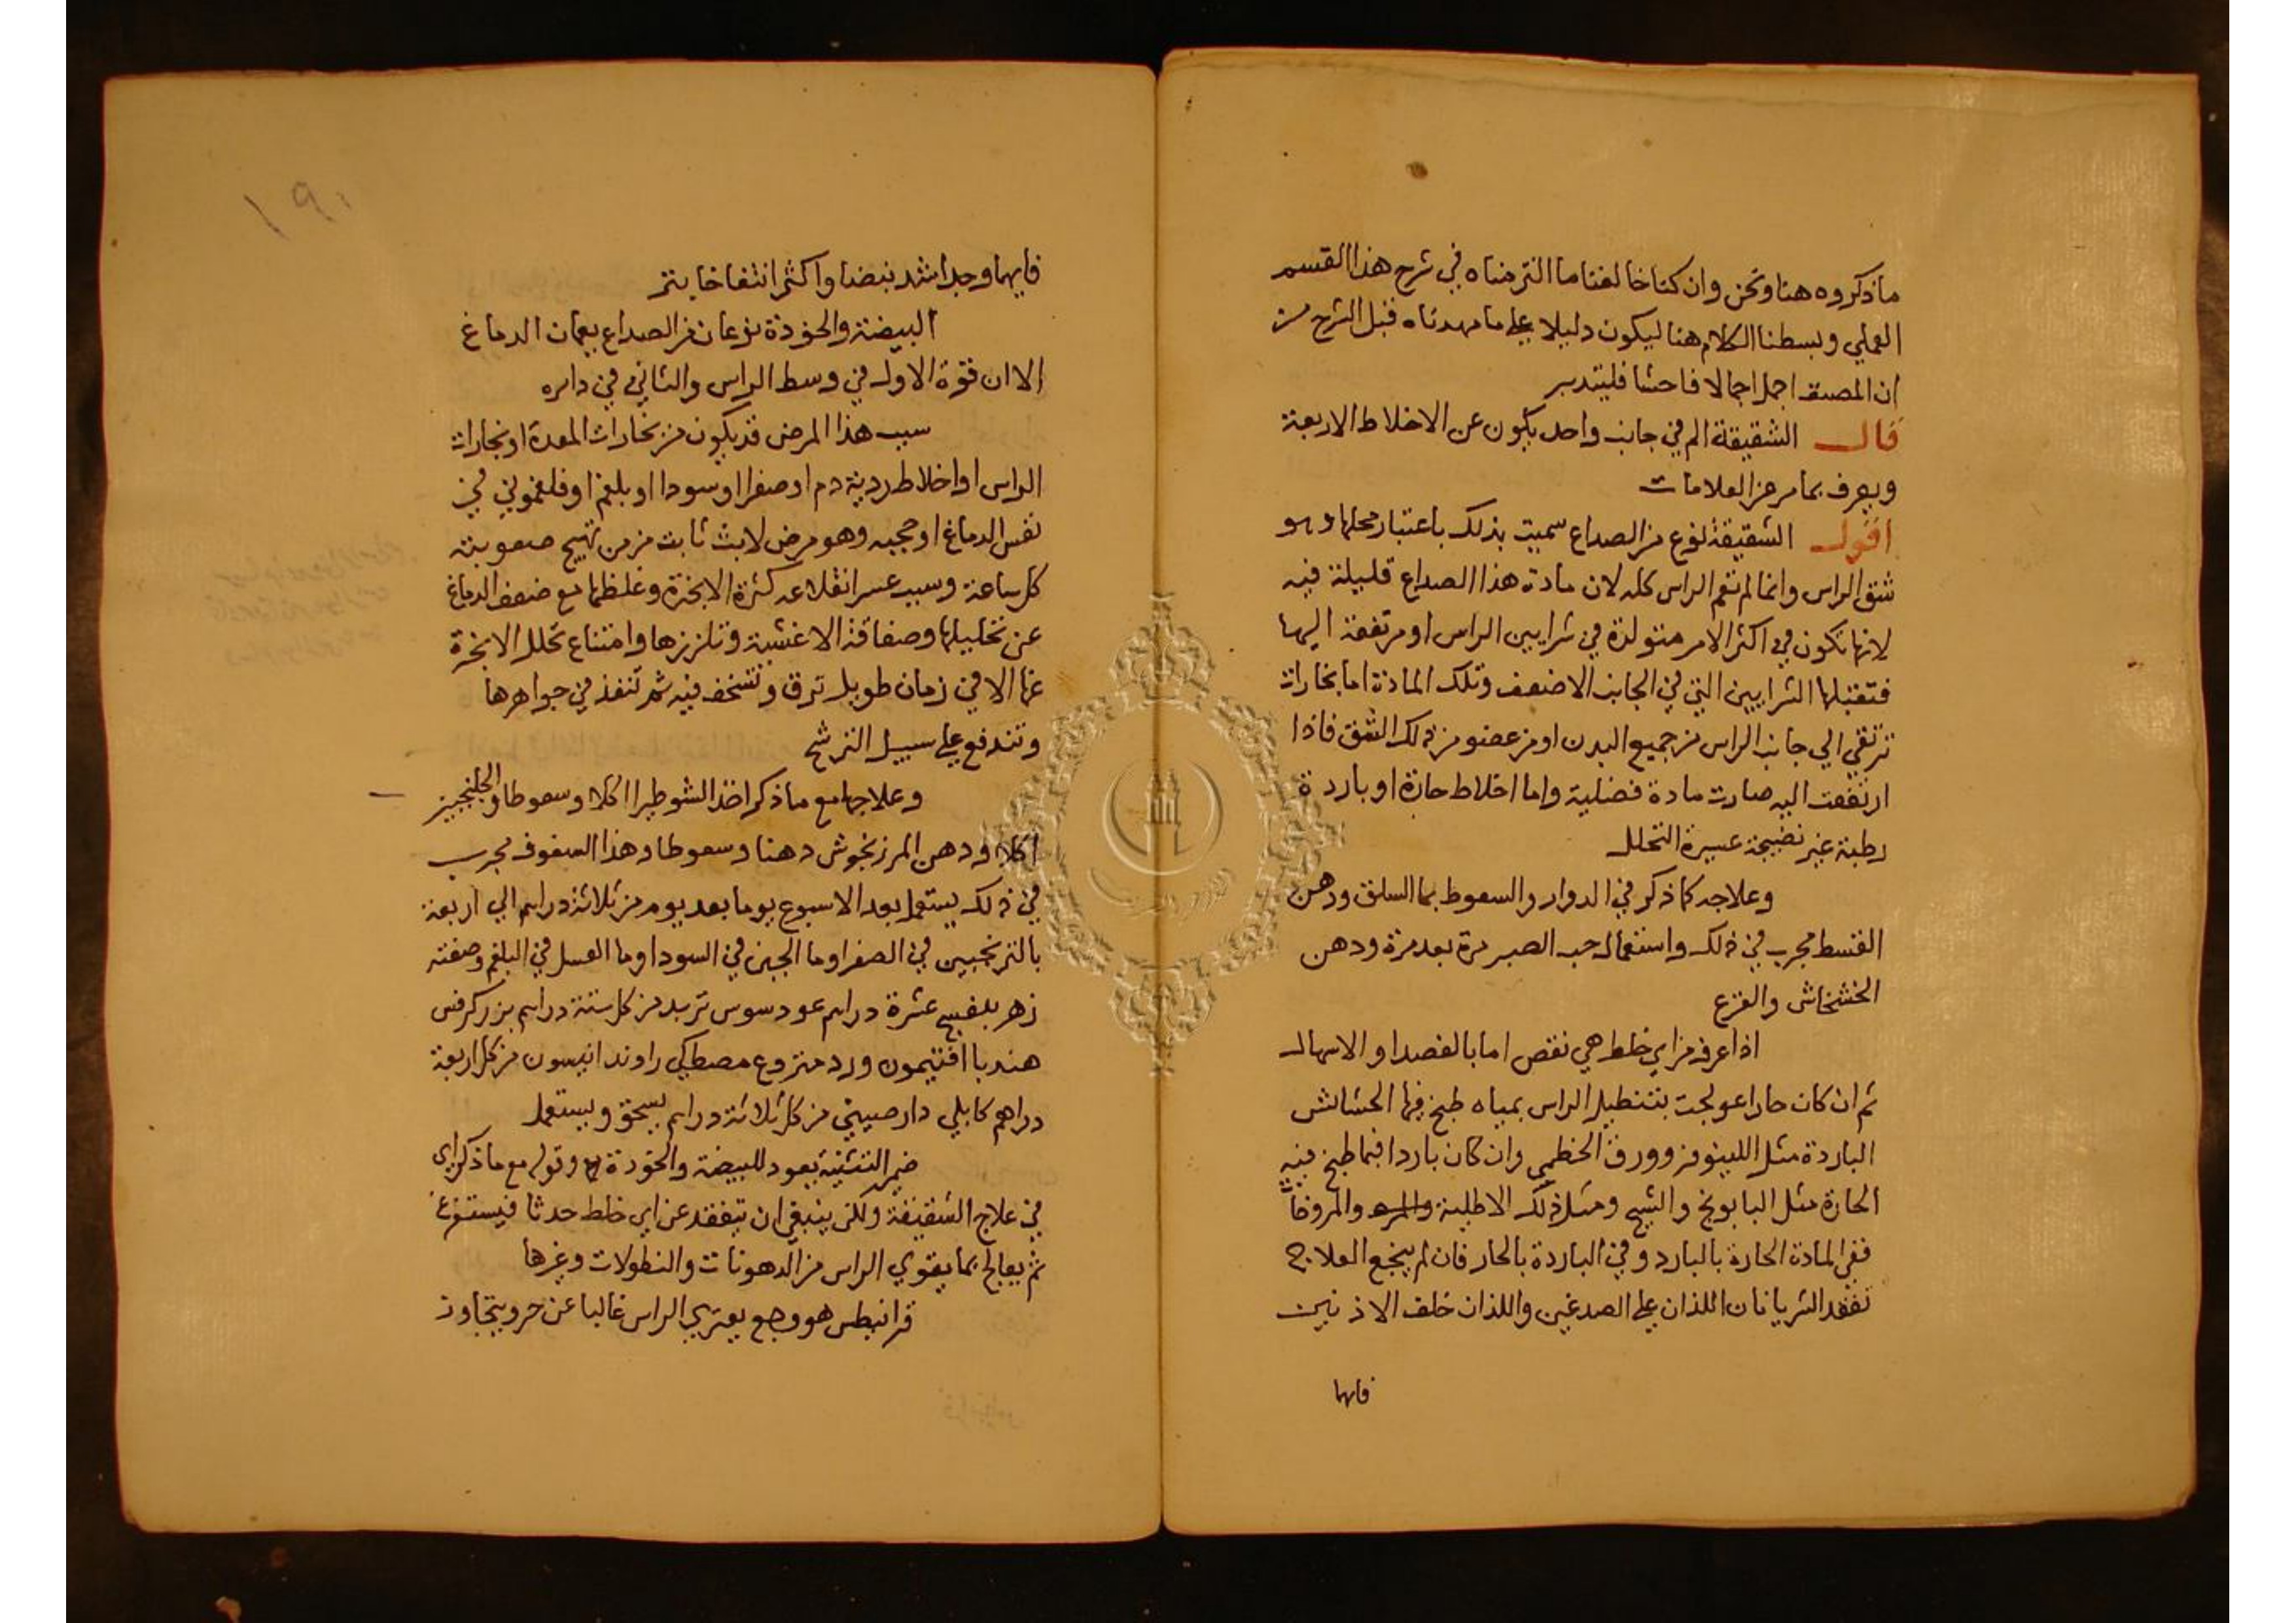 ماذكروه هنا ونحن وان كنا خالفنا ما التزمناه في شرح هذا القسم
العملي وبسطنا الكلام هنا ليكون دليلا علي ما مهدناه قبل الشرح من
ان المصنف اجمل اجمالا فاحشا فليتدبر
قال الشقيقة الم في جانب واحد يكون عن الاخلاط الاربعة
ويعرف بما مر من العلامات
اقول الشقيقة نوع من الصداع سميت بذلك باعتبار محلها وهو
شق الراس وانما لم تعم الراس كله لان مادة هذا الصداع قليلة فيه
لانها تكون في اكثر الامر متولدة في شرايين الراس او مرتفعة اليها
فتقبلها الشرايين التي في الجانب الاضعف وتلك المادة اما بخارات
ترتقي الي جانب الراس من جميع البدن او من عضو من ذلك الشق فاذا
ارتفعت اليه صارت مادة فضلية واما اخلاط حارة او باردة
رطبة غير نضيجة عسيرة التحلل
وعلاجه كما ذكر في الدوار والسعوط بما السلق ودهن
القسط مجرب في ذلك واستعمال حب الصبر مرة بعد مرة ودهن
الخشخاش والقرع
اذا عرف من اي خلط هي نقص اما بالفصد او الاسهال
ثم ان كان حارا عولجت بتنطيل الراس بمياه طبخ فيها الحشائش
الباردة مثل اللينوفر وورق الخطمي وان كان باردا فبما طبخ فيه
الحارة مثل البابونج والشيح ومثل ذلك الاطلية والمروخات
ففي المادة الحارة بالبارد وفي الباردة بالحار فان لم ينجع العلاج
تفقد الشريانان اللذان علي الصدغين واللذان خلف الاذنين
فايهما
١٩٠
فايهما وجد اشد نبضا واكثر انتفاخا بتر
البيضة والخوذة نوعان من الصداع يعمان الدماغ
الا ان قوة الاول في وسط الراس والثاني في دايره
سبب هذا المرض قد يكون من بخارات المعدة او بخارات
الراس او اخلاط ردية دم او صفرا او سودا او بلغم او فلغموني في
نفس الدماغ او حجبه وهو مرض لابث ثابت مزمن تهيج صعوبته
كل ساعة وسبب عسر انقلاعه كثرة الابخرة وغلظها مع ضعف الدماغ
عن تحليلها وصفاقة الاغشية وتلززها وامتناع تحلل الابخرة
عنها الا في زمان طويل ترق وتسخف فيه ثم تنفذ في جواهرها
وتندفع علي سبيل الترشح
وعلاجها مع ما ذكر اخذ الشوطيرا اكلا وسعوطا والجلنجبين
اكلا ودهن المرزنجوش دهنا وسعوطا وهذا السفوف مجرب
في ذلك يستعمل بعد الاسبوع يوما بعد يوم من ثلاثة دراهم الي اربعة
بالترنجبين في الصفرا وما الجبن في السودا وما العسل في البلغم وصفته
زهر بنفسج عشرة دراهم عود سوس تربد من كل ستة دراهم بزر كرفس
هندبا افتيمون ورد منزوع مصطكي راوند انيسون من كل اربعة
دراهم كابلي دارصيني من كل ثلاثة دراهم يسحق ويستعمل
ضمير التثنية يعود للبيضة والخوذة وقوله مع ما ذكر اي
في علاج الشقيقة ولكن ينبغي ان يتفقد عن اي خلط حدثا فيستفرغ
ثم يعالج بما يقوي الراس من الدهونات والنطولات وغيرها
قرانيطس هو وجع يعتري الراس غالبا عن حر ويتجاوز